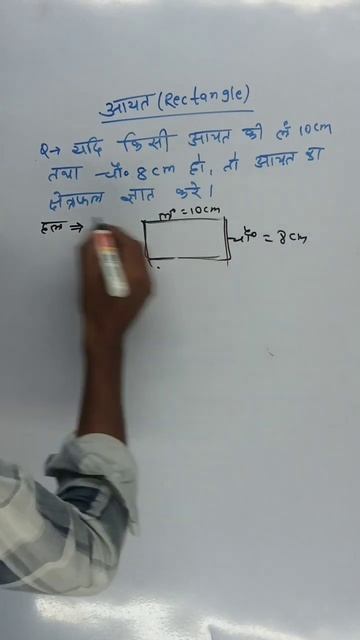 आयत (Rectangle)
Q→ यदि किसी आयत की लं 10cm
तथा चौ० 8cm हो, तो आयत का
क्षेत्रफल ज्ञात करे।
हल ⇒
लं० = 10cm
चौ० = 8cm